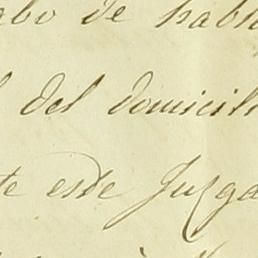 abo de habe
del domicili
te este Juzga